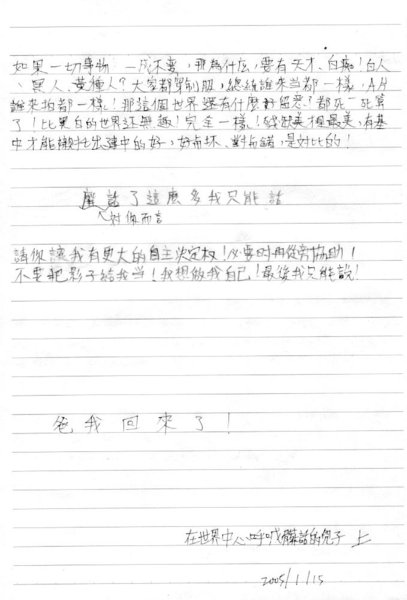 如果一切事物 一成不變,那為什么,要有天才、白痴!白人
、黑人、黃種人?大家都穿制服,總統誰來當都一樣,AA
誰來拍都一樣!那這個世界還有什麼好留戀?都死一死算
了!比黑白的世界还無趣!完全一樣!殘缺美才是最美,有基
中才能襯托出建中的好,好有坏、對有錯,是对比的!
廢話了這麼多我只能話
对你而言
請你讓我有更大的自主決定权!必要时再從旁協助!
不要把影子給我当!我想做我自己!最後我只能說!
爸我回來了!
在世界中心呼喊 話的兒子 上
2005/1/15